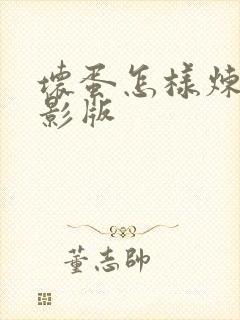 壞蛋怎樣煉
影版
董志帥